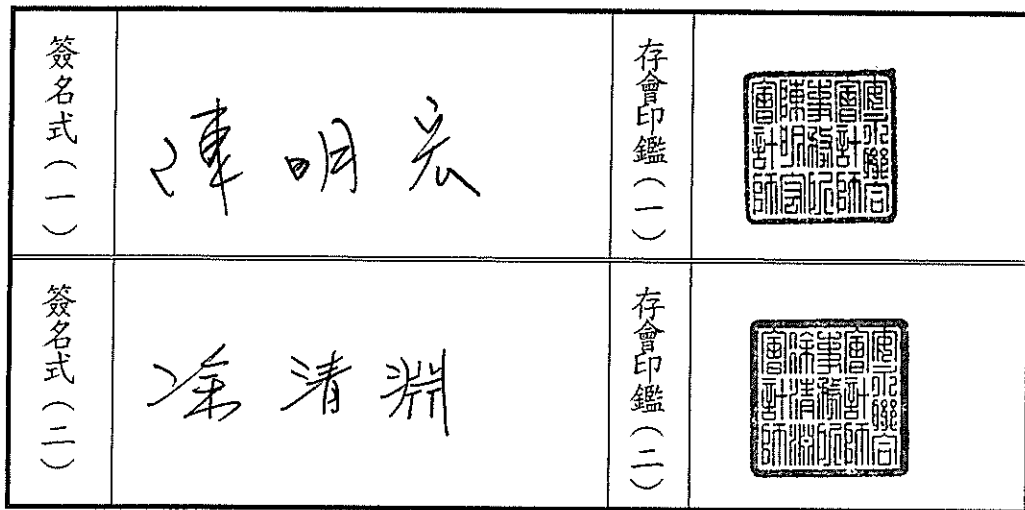 簽名式(一)
陳明宏
存會印鑑(一)
安永聯合
會計師
事務所
陳明宏
會計師
簽名式(二)
涂清淵
存會印鑑(二)
安永聯合
會計師
事務所
涂清淵
會計師